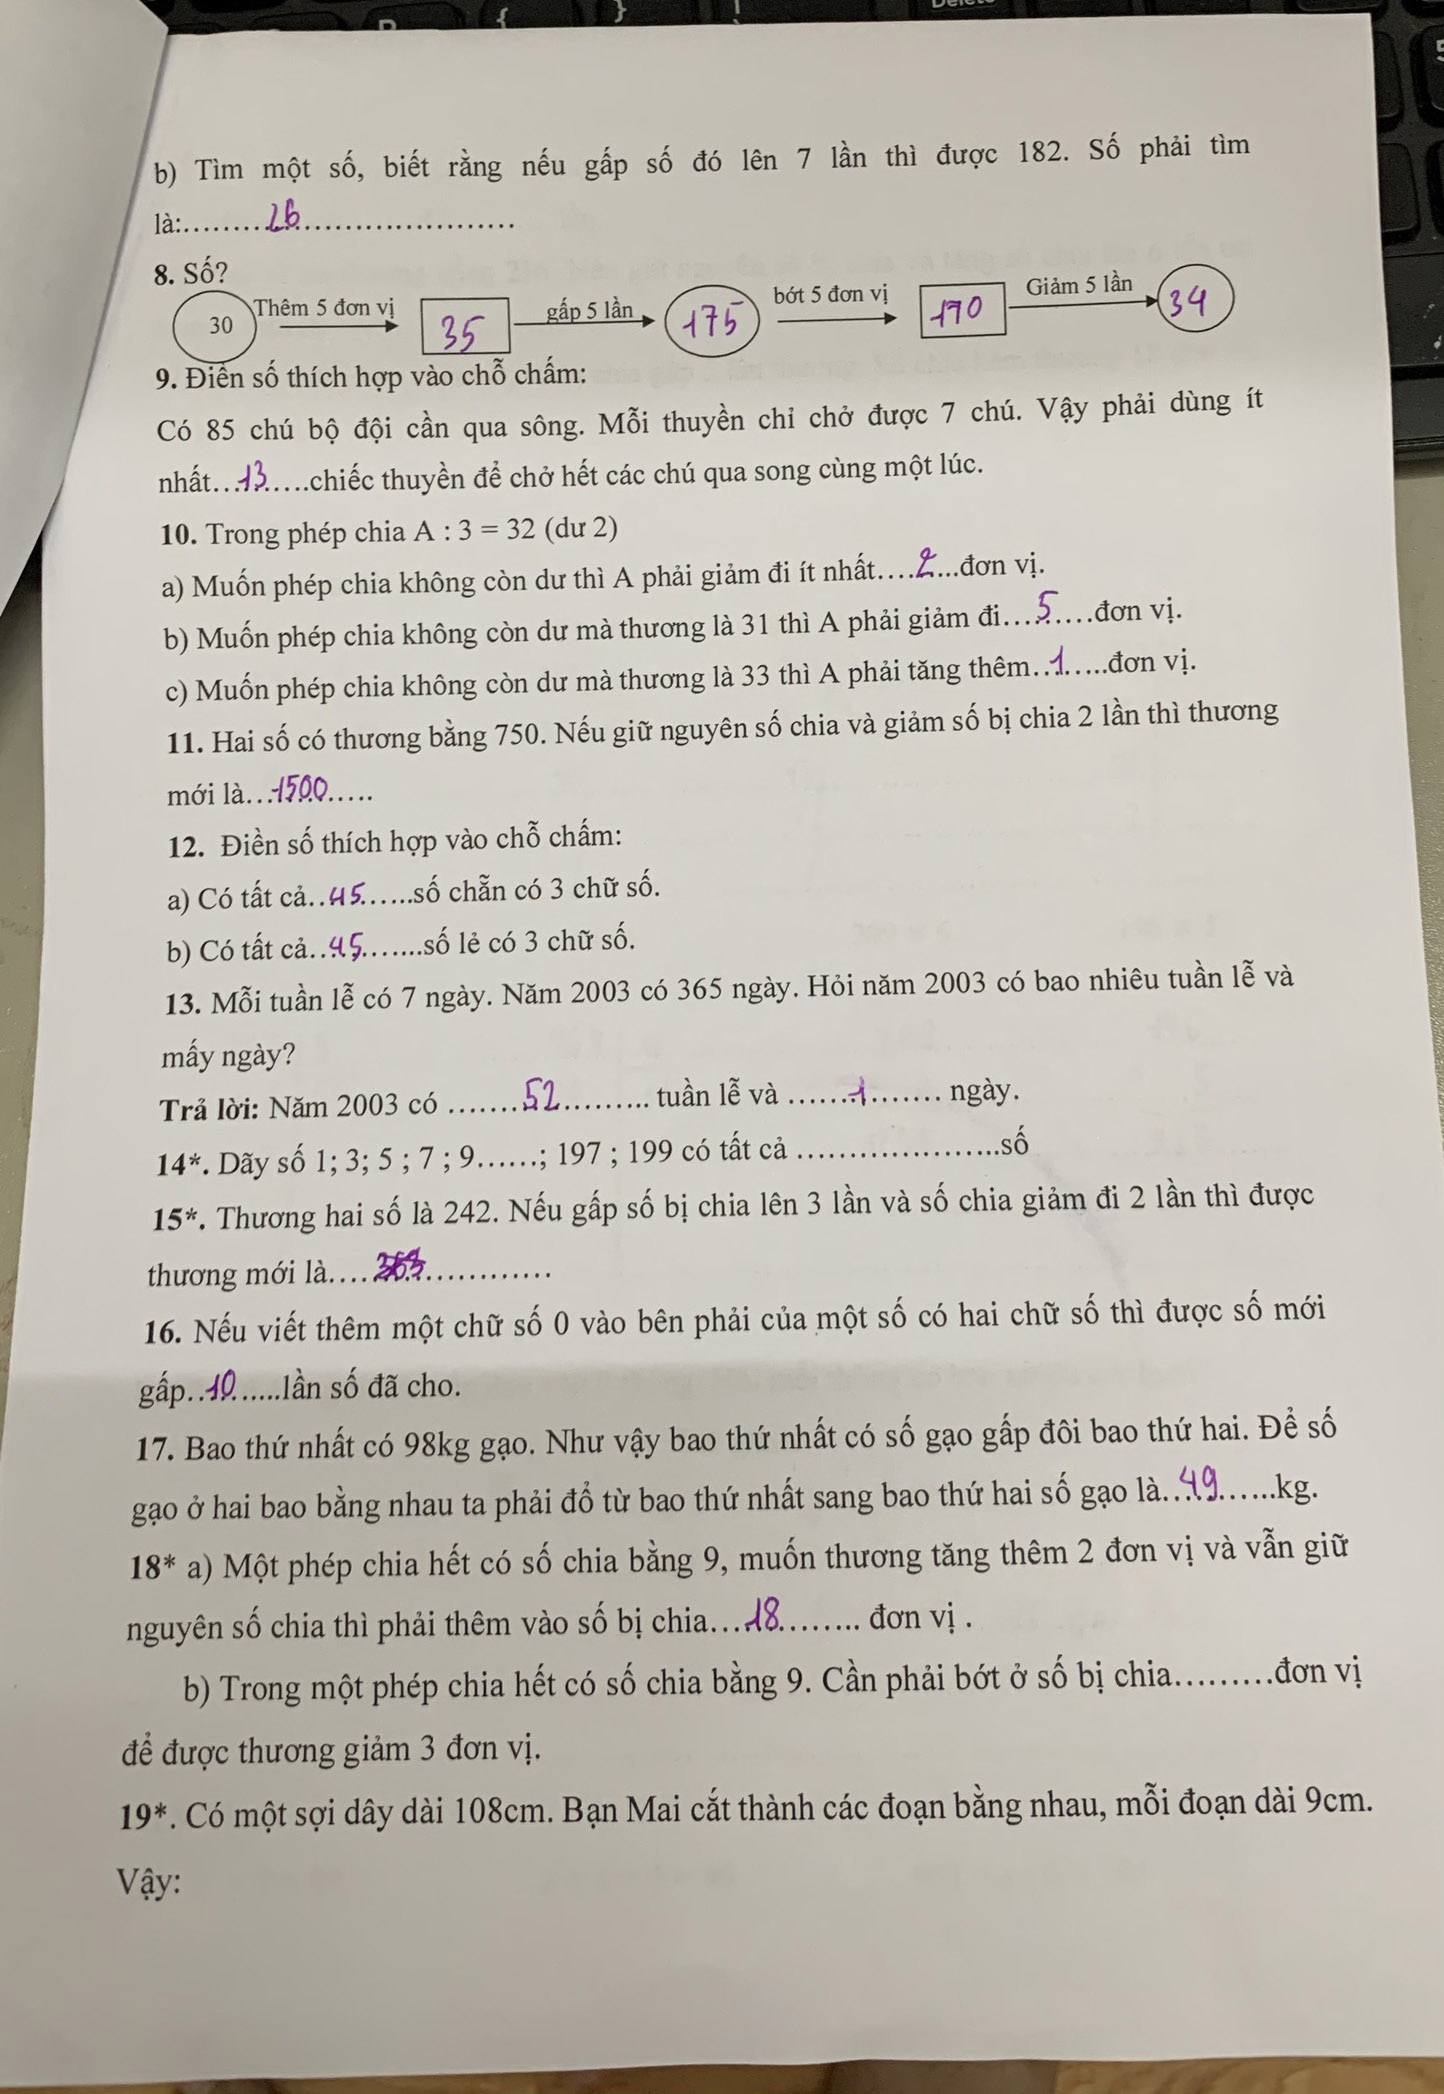 b) Tìm một số, biết rằng nếu gấp số đó lên 7 lần thì được 182. Số phải tìm
là:.........26...........................
8. Số?
30 Thêm 5 đơn vị 35 gấp 5 lần 175 bớt 5 đơn vị 170 Giảm 5 lần 34
9. Điền số thích hợp vào chỗ chấm:
Có 85 chú bộ đội cần qua sông. Mỗi thuyền chỉ chở được 7 chú. Vậy phải dùng ít
nhất...13......chiếc thuyền để chở hết các chú qua song cùng một lúc.
10. Trong phép chia A : 3 = 32 (dư 2)
a) Muốn phép chia không còn dư thì A phải giảm đi ít nhất....2....đơn vị.
b) Muốn phép chia không còn dư mà thương là 31 thì A phải giảm đi....5.....đơn vị.
c) Muốn phép chia không còn dư mà thương là 33 thì A phải tăng thêm...1.....đơn vị.
11. Hai số có thương bằng 750. Nếu giữ nguyên số chia và giảm số bị chia 2 lần thì thương
mới là...1500.....
12. Điền số thích hợp vào chỗ chấm:
a) Có tất cả..45......số chẵn có 3 chữ số.
b) Có tất cả...45.......số lẻ có 3 chữ số.
13. Mỗi tuần lễ có 7 ngày. Năm 2003 có 365 ngày. Hỏi năm 2003 có bao nhiêu tuần lễ và
mấy ngày?
Trả lời: Năm 2003 có .......52......... tuần lễ và .......1........ ngày.
14*. Dãy số 1; 3; 5 ; 7 ; 9......; 197 ; 199 có tất cả .....................số
15*. Thương hai số là 242. Nếu gấp số bị chia lên 3 lần và số chia giảm đi 2 lần thì được
thương mới là.... 363.............
16. Nếu viết thêm một chữ số 0 vào bên phải của một số có hai chữ số thì được số mới
gấp..10......lần số đã cho.
17. Bao thứ nhất có 98kg gạo. Như vậy bao thứ nhất có số gạo gấp đôi bao thứ hai. Để số
gạo ở hai bao bằng nhau ta phải đổ từ bao thứ nhất sang bao thứ hai số gạo là...49......kg.
18* a) Một phép chia hết có số chia bằng 9, muốn thương tăng thêm 2 đơn vị và vẫn giữ
nguyên số chia thì phải thêm vào số bị chia....18........ đơn vị .
b) Trong một phép chia hết có số chia bằng 9. Cần phải bớt ở số bị chia.........đơn vị
để được thương giảm 3 đơn vị.
19*. Có một sợi dây dài 108cm. Bạn Mai cắt thành các đoạn bằng nhau, mỗi đoạn dài 9cm.
Vậy: